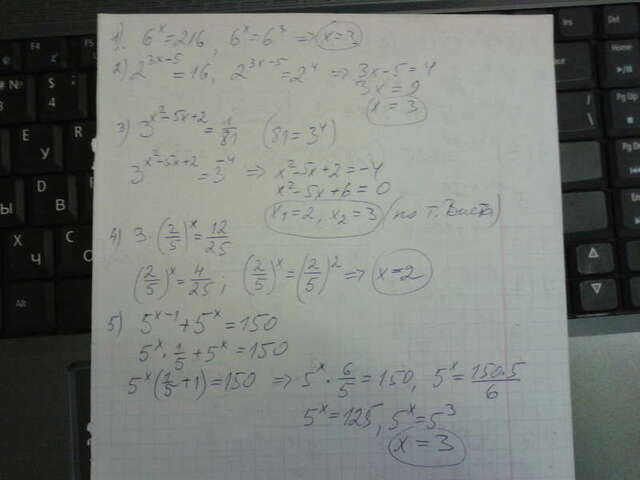 1) 6^x = 216, 6^x = 6^3 => x = 3
2) 2^(3x-5) = 16, 2^(3x-5) = 2^4 => 3x - 5 = 4
3x = 9
x = 3
3) 3^(x²-5x+2) = 1/81 (81 = 3^4)
3^(x²-5x+2) = 3^(-4) => x² - 5x + 2 = -4
x² - 5x + 6 = 0
x₁ = 2, x₂ = 3 (по т. Виета)
4) 3 · (2/5)^x = 12/25
(2/5)^x = 4/25, (2/5)^x = (2/5)^2 => x = 2
5) 5^(x-1) + 5^x = 150
5^x · 1/5 + 5^x = 150
5^x (1/5 + 1) = 150 => 5^x · 6/5 = 150, 5^x = 150·5/6
5^x = 125, 5^x = 5^3
x = 3